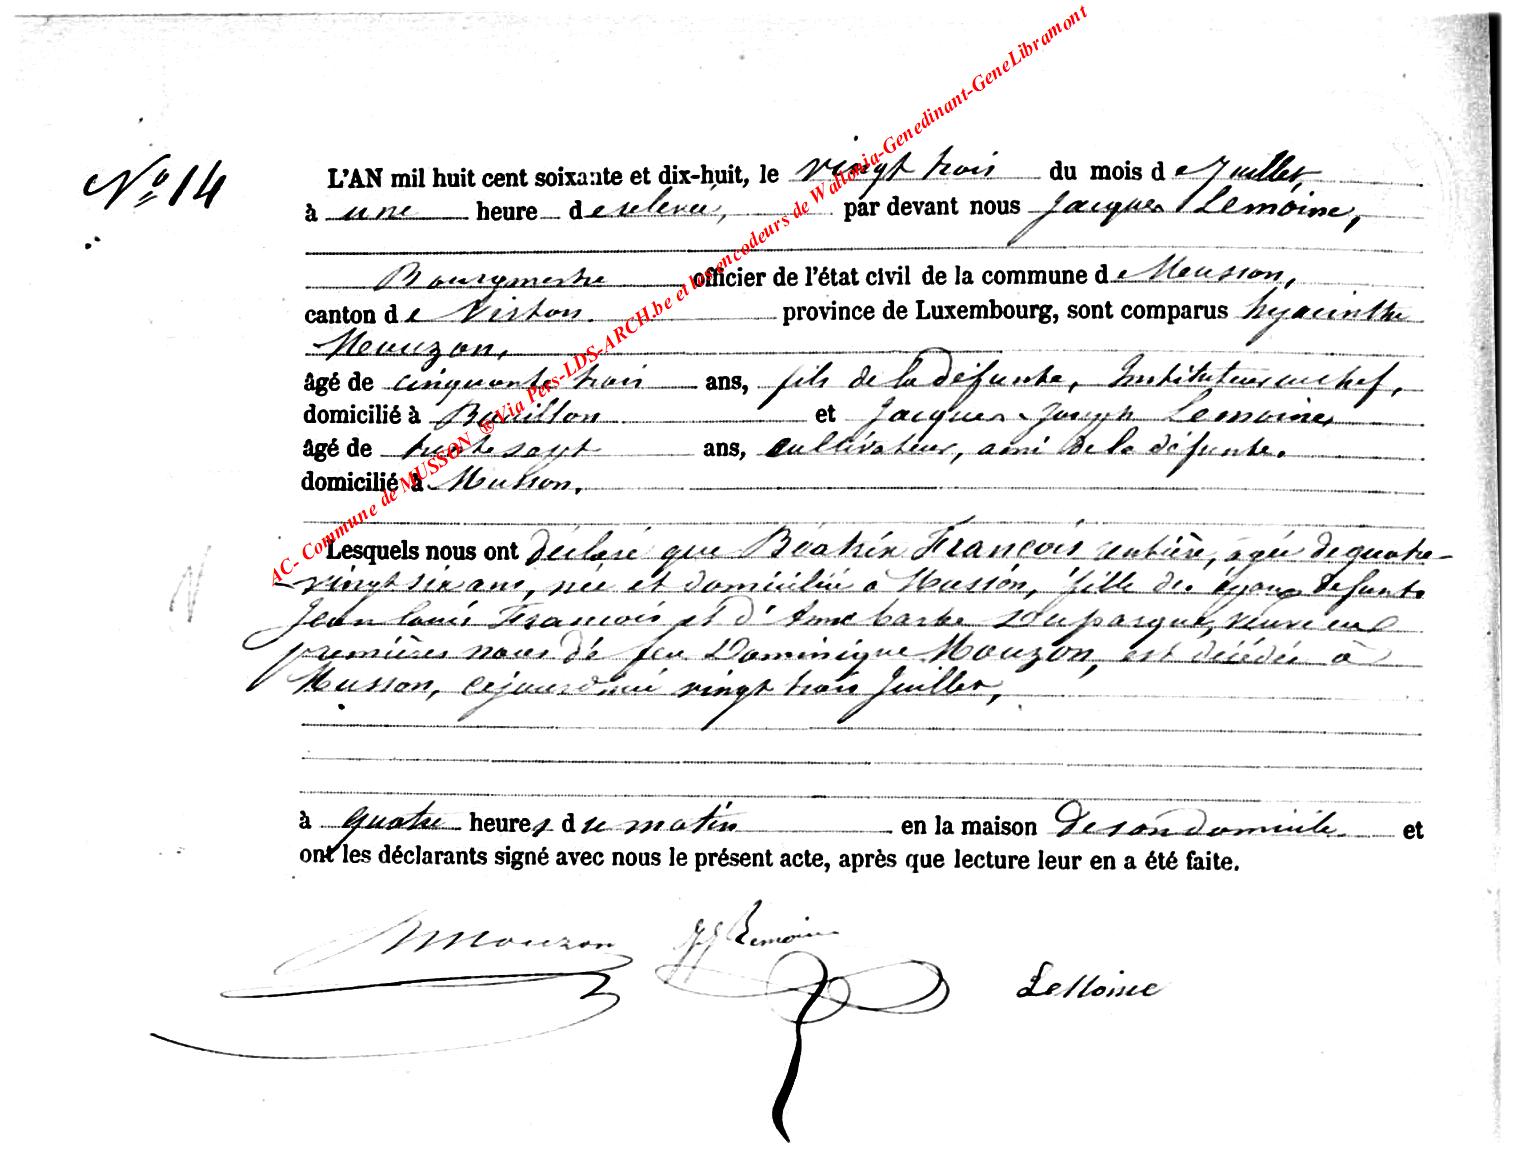 No 14
L'AN mil huit cent soixante et dix-huit, le vingt trois du mois de Juillet,
à une heure de relevée, par devant nous Jacques Lemoine,
Bourgmestre officier de l'état civil de la commune de Musson,
canton de Virton. province de Luxembourg, sont comparus hyacinthe
Mouzon,
âgé de cinquante trois ans, fils de la défunte, Instituteur en chef,
domicilié à Bouillon et Jacques Joseph Lemoine,
âgé de trente sept ans, cultivateur, ami de la défunte.
domicilié à Musson.
Lesquels nous ont déclaré que Béatrix François rentière, agée de quatre-
vingt six ans, née et domiciliée à Musson, fille des époux défunts
Jean louis François et d'Anne barbe Duparque, veuve en
premières noces de feu Dominique Mouzon, est décédée à
Musson, cejourd'hui vingt trois Juillet,
à quatre heures du matin en la maison de son domicile et
ont les déclarants signé avec nous le présent acte, après que lecture leur en a été faite.
Mouzon JJ Lemoine
LeMoine
AC- Commune de MUSSON ®Via Pers-LDS-ARCH.be et les encodeurs de Wallonia-Genedinant-GeneLibramont